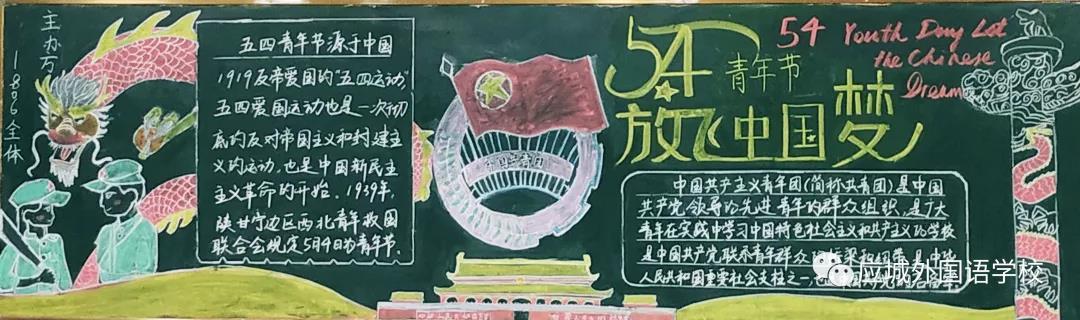 主办方
1806全体
五四青年节源于中国
1919反帝爱国的“五四运动”,
五四爱国运动也是一次彻
底的反对帝国主义和封建主
义的运动,也是中国新民主
主义革命的开始。1939年,
陕甘宁边区西北青年救国
联合会规定5月4日为青年节.
中国共青团
54
青年节
放飞中国梦
54 Youth Day Let
the Chinese
Dream
中国共产主义青年团(简称共青团)是中国
共产党领导的先进青年的群众组织,是广大
青年在实践中学习中国特色社会主义和共产主义的学校
是中国共产党联系青年群众的桥梁和纽带是中华
人民共和国重要社会支柱之一,
应城外国语学校